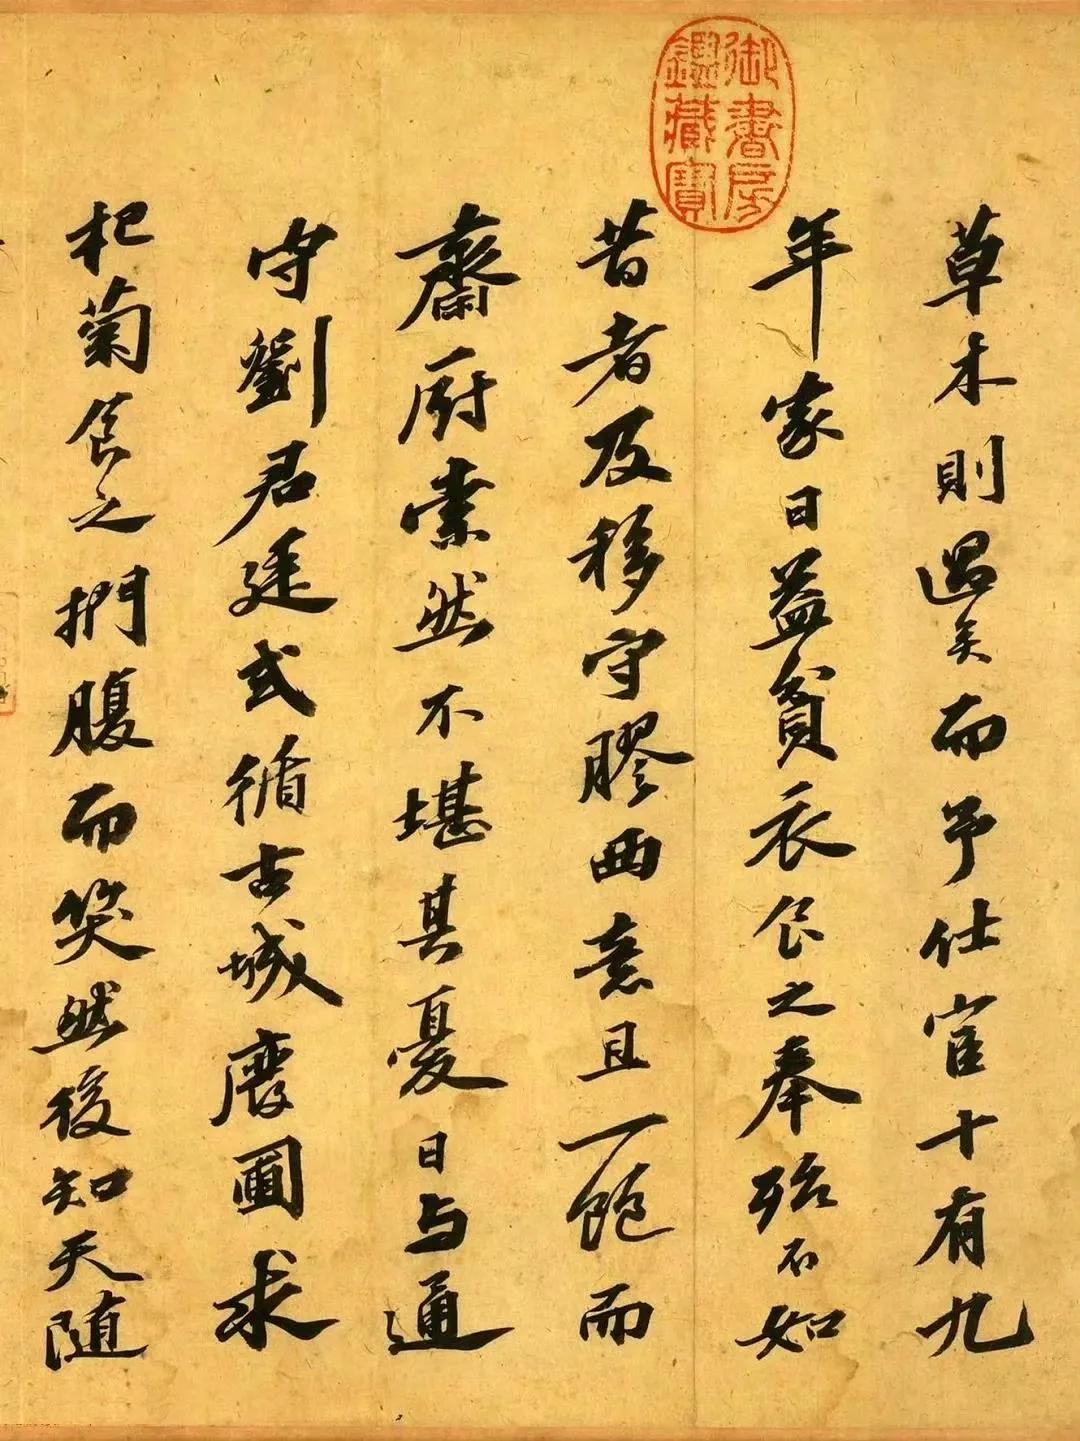 御書房
鑑藏寶
草木則過矣而予仕宦十有九
年家日益貧衣食之奉殆不如
昔者及移守膠西意且一飽而
齋厨索然不堪其憂日與通
守劉君廷式循古城廢圃求
杞菊食之捫腹而笑然後知天随